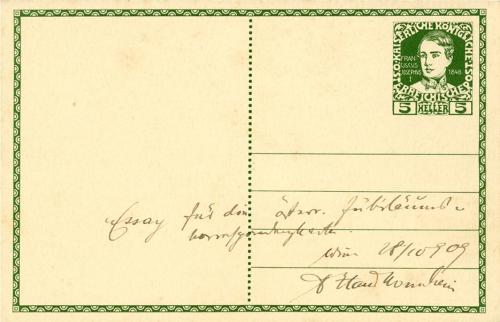 KAISERLICHE KÖNIGLICHE
ÖSTERREICHISCHE
FRAN
CISCUS
JOSEPHUS
I
1848
5 HELLER 5
Essay für die österr. Jubiläums-
korrespondenzkarte.
Wien 28/10 909